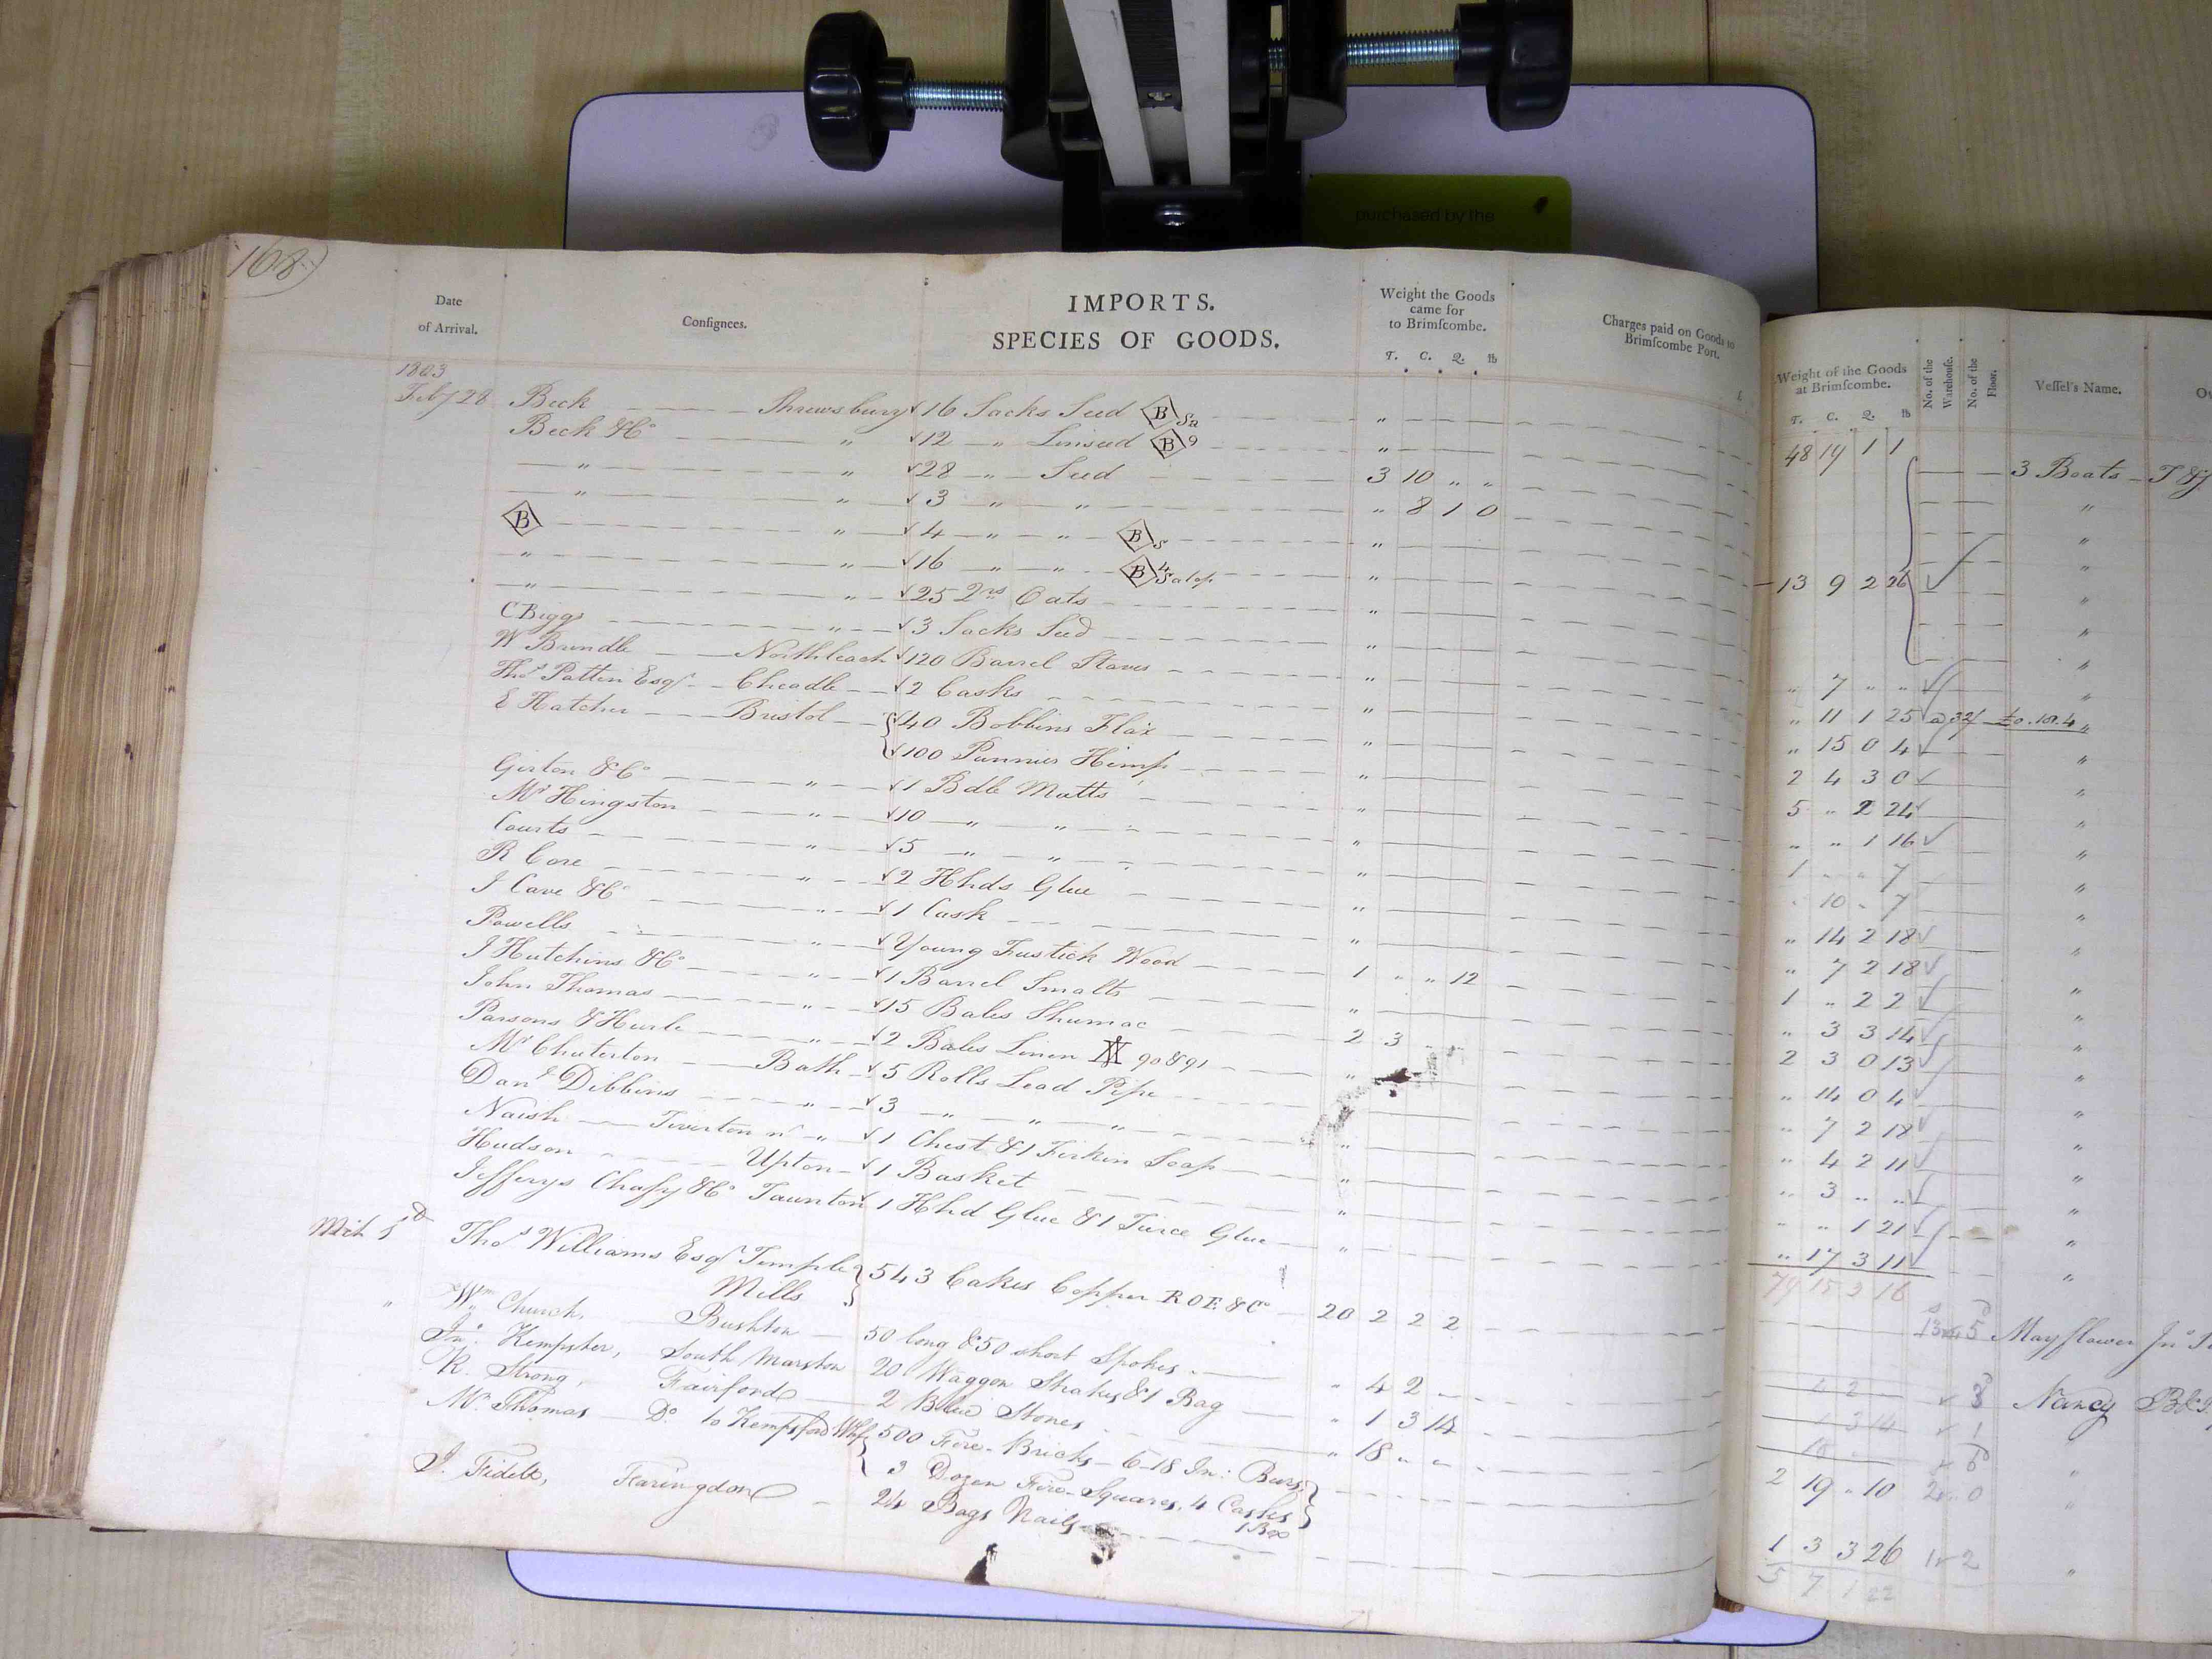 purchased by the
168)
Date
of Arrival.
Consignees.
IMPORTS.
SPECIES OF GOODS.
Weight the Goods
came for
to Brimscombe.
T. C. Q. lb
Charges paid on Goods to
Brimscombe Port.
£
1803
Feby 28 Beck Shrewsbury 16 Sacks Seed B Sa "
Beck & Co " 12 " Linseed B 9 "
" " 28 " Seed 3 10 " "
" " 3 " " " 8 1 0
B " 4 " " B S "
" " 16 " " B 4 Salop "
" " 25 2rs Oats "
C Biggs " 3 Sacks Seed "
W Brindle Northleach 120 Barrel Staves "
Thos Patten Esqr Cheadle 2 Casks "
E Hatcher Bristol 40 Bobbins Flax "
100 Punnies Hemp "
Girton & Co " 1 Bdle Matts "
Mr Hingston " 10 " " "
Courts " 5 " " "
R Core " 2 Hhds Glue "
J Cave & Co " 1 Cask "
Powells " Young Fustick Wood 1 " " 12
J Hutchins & Co " 1 Barrel Smalts "
John Thomas " 15 Bales Shumac 2 3
Parsons & Hurle " 2 Bales Linen 90 & 91 "
Mr Chuterton Bath 5 Rolls Lead Pipe
Danl Dibbins " 3 " " "
Naish Tiverton nr " 1 Chest & 1 Firkin Soap "
Hudson Upton 1 Basket "
Jefferys Chafy & Co Taunton 1 Hhd Glue & 1 Tierce Glue "
Mch 5th Thos Williams Esqr Temple
Mills 543 Cakes Copper ROE & Co 20 2 2 2
" Wm Church, Bushton 50 long & 50 short Spokes " 4 2
Jno. Kempster, South Marston 20 Waggon Strakes & 1 Bag " 1 3 14
R. Strong, Fairford 2 Blue Stones " 18 " "
Mr Thomas Do to Kempsford Whf 500 Fire-Bricks 6-18 In: Burs,
3 Dozen Fire-Squares, 4 Casks
1 Box
J. Fidel, Faringdon 24 Bags Nails
Weight of the Goods
at Brimscombe.
T. C. Q. lb
No. of the
Warehouse.
No. of the
Floor.
Vessel's Name.
48 19 1 1
3 Boats
13 9 2 26
" 7 " "
" 11 1 25
" 15 0 4
2 4 3 0
5 " 2 24
" " 1 16
1 " " 7
" 10 " 7
" 14 2 18
" 7 2 18
1 " 2 2
" 3 3 14
2 3 0 13
" 14 0 4
" 7 2 18
" 4 2 11
" 3 " "
" " 1 21
" 17 3 11
79 15 2 16
Mayflower Jno
4 2
Nancy
1 3 14
18
2 19 " 10
1 3 3 26
5 7 1 22